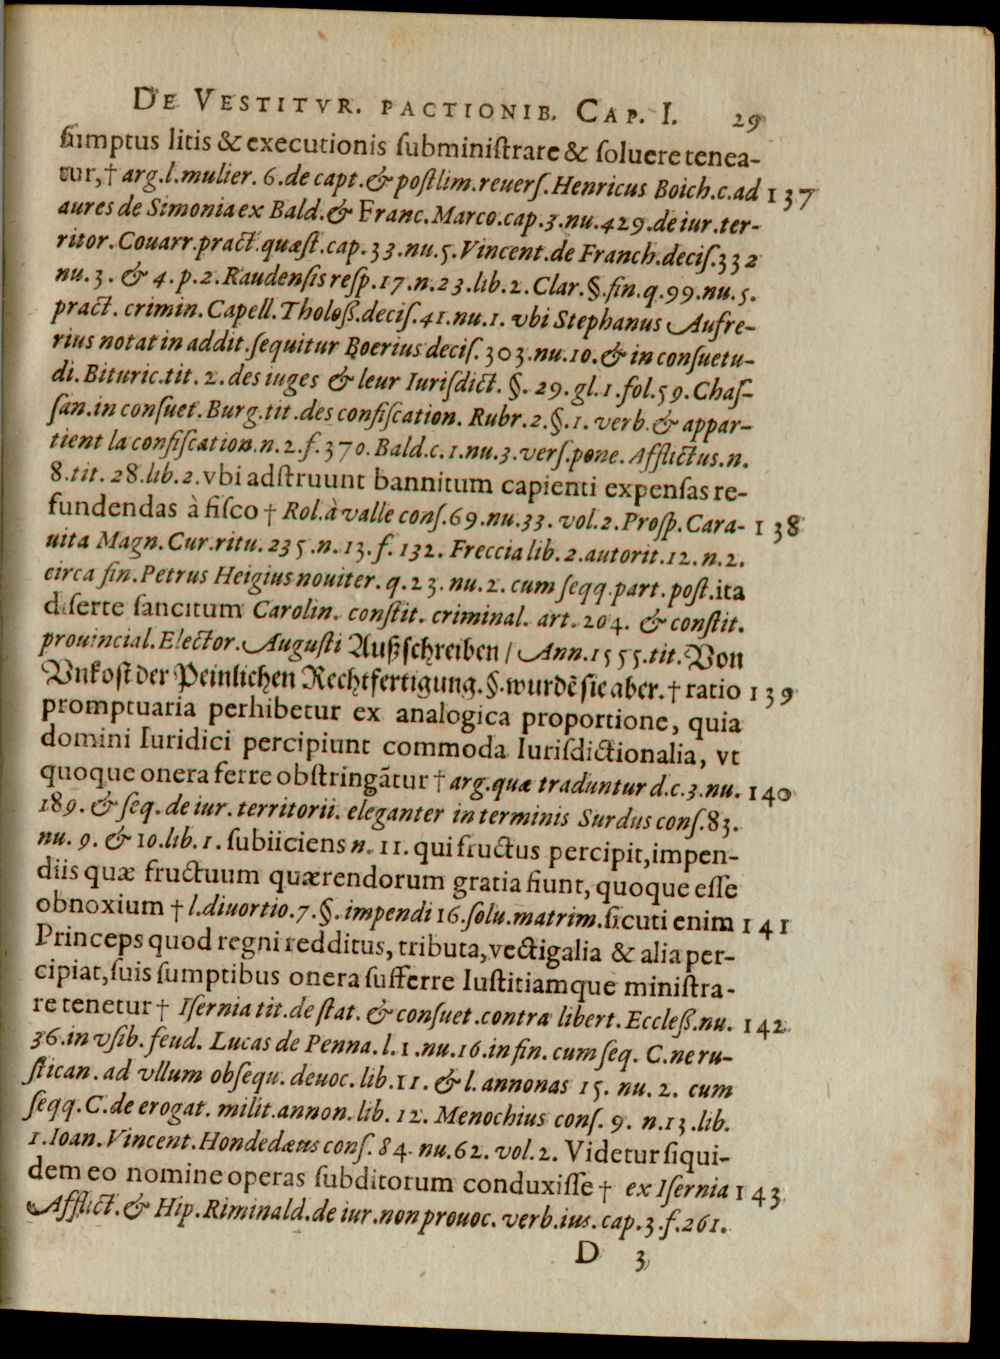 DE VESTITVR. PACTIONIB. CAP. I. 29
sumptus litis & executionis subministrare & soluere tenea-
tur, † arg. l. mulier. 6. de capt. & postlim. reuers. Henricus Boich. c. ad 137
aures de Simonia ex Bald. & Franc. Marco. cap. 3. nu. 429. de iur. ter-
ritor. Couarr. pract. quæst. cap. 33. nu. 5. Vincent. de Franch. decis. 332
nu. 3. & 4. p. 2. Raudensis resp. 17. n. 23. lib. 2. Clar. §. fin. q. 99. nu. 5.
pract. crimin. Capell. Tholoß. decis. 41. nu. 1. vbi Stephanus Aufre-
rius notat in addit. sequitur Boerius decis. 303. nu. 10. & in consuetu-
di. Bituric. tit. 2. des iuges & leur Iurisdict. §. 29. gl. 1. fol. 59. Chas-
san. in consuet. Burg. tit. des confiscation. Rubr. 2. §. 1. verb. & appar-
tient la confiscation. n. 2. f. 370. Bald. c. 1. nu. 3. vers. pone. Afflictus. n.
8. tit. 28. lib. 2. vbi adstruunt bannitum capienti expensas re-
fundendas à fisco † Rol. à valle cons. 69. nu. 33. vol. 2. Prosp. Cara- 138
uita Magn. Cur. ritu. 235. n. 13. f. 132. Freccia lib. 2. autorit. 12. n. 2.
circa fin. Petrus Heigius nouiter. q. 23. nu. 2. cum seqq. part. post. ita
diserte sancitum Carolin. constit. criminal. art. 204. & constit.
prouincial. Elector. Augusti Außschreiben / Ann. 1555. tit. Von
Vnkost der Peinlichen Rechtfertigung. §. wurdẽ sie aber. † ratio 139
promptuaria perhibetur ex analogica proportione, quia
domini Iuridici percipiunt commoda Iurisdictionalia, vt
quoque onera ferre obstringãtur † arg. quæ traduntur d. c. 3. nu. 140
189. & seq. de iur. territorii. eleganter in terminis Surdus cons. 83.
nu. 9. & 10. lib. 1. subiiciens n. 11. qui fructus percipit, impen-
diis quæ fructuum quærendorum gratia fiunt, quoque esse
obnoxium † l. diuortio. 7. §. impendi 16. solu. matrim. sicuti enim 141
Princeps quod regni redditus, tributa, vectigalia & alia per-
cipiat, suis sumptibus onera sufferre Iustitiamque ministra-
re tenetur † Isernia tit. de stat. & consuet. contra libert. Eccleß. nu. 142
36. in vsib. feud. Lucas de Penna. l. 1. nu. 16. in fin. cum seq. C. ne ru-
stican. ad vllum obsequ. deuoc. lib. 11. & l. annonas 15. nu. 2. cum
seqq. C. de erogat. milit. annon. lib. 12. Menochius cons. 9. n. 13. lib.
1. Ioan. Vincent. Hondedæus cons. 84. nu. 62. vol. 2. Videtur siqui-
dem eo nomine operas subditorum conduxisse † ex Isernia 143
Afflict. & Hip. Riminald. de iur. non prouoc. verb. ius. cap. 3. f. 261.
D 3